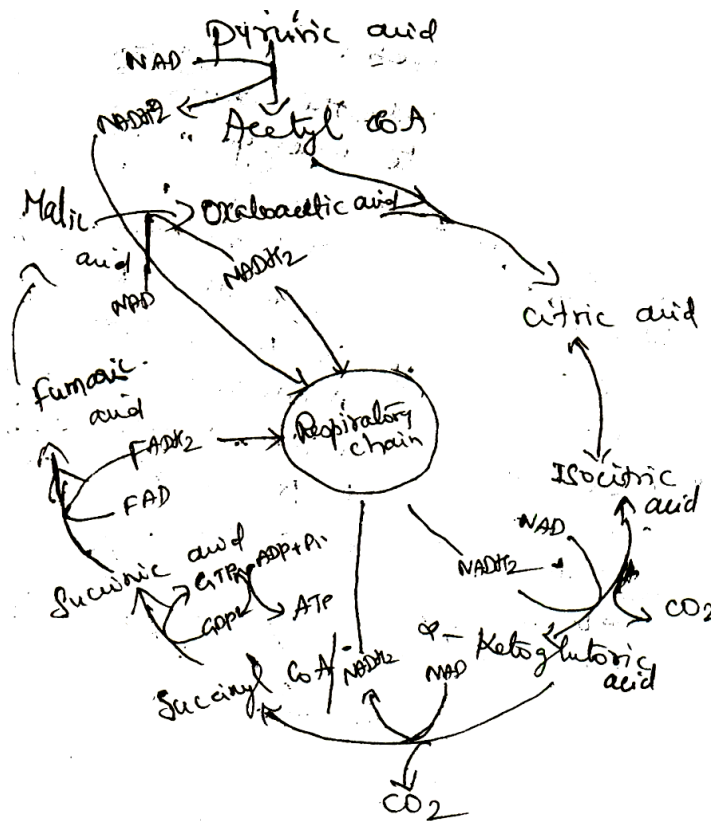 Pyruvic acid
NAD
NADH2
Acetyl CoA
Malic
acid
Oxaloacetic acid
NADH2
NAD
Citric acid
Fumaric
acid
FADH2
Respiratory
chain
FAD
Isocitric
acid
NAD
NADH2
CO2
Succinic acid
GTP
ADP+Pi
GDP
ATP
α-Ketoglutaric
acid
Succinyl CoA
NADH2
NAD
CO2